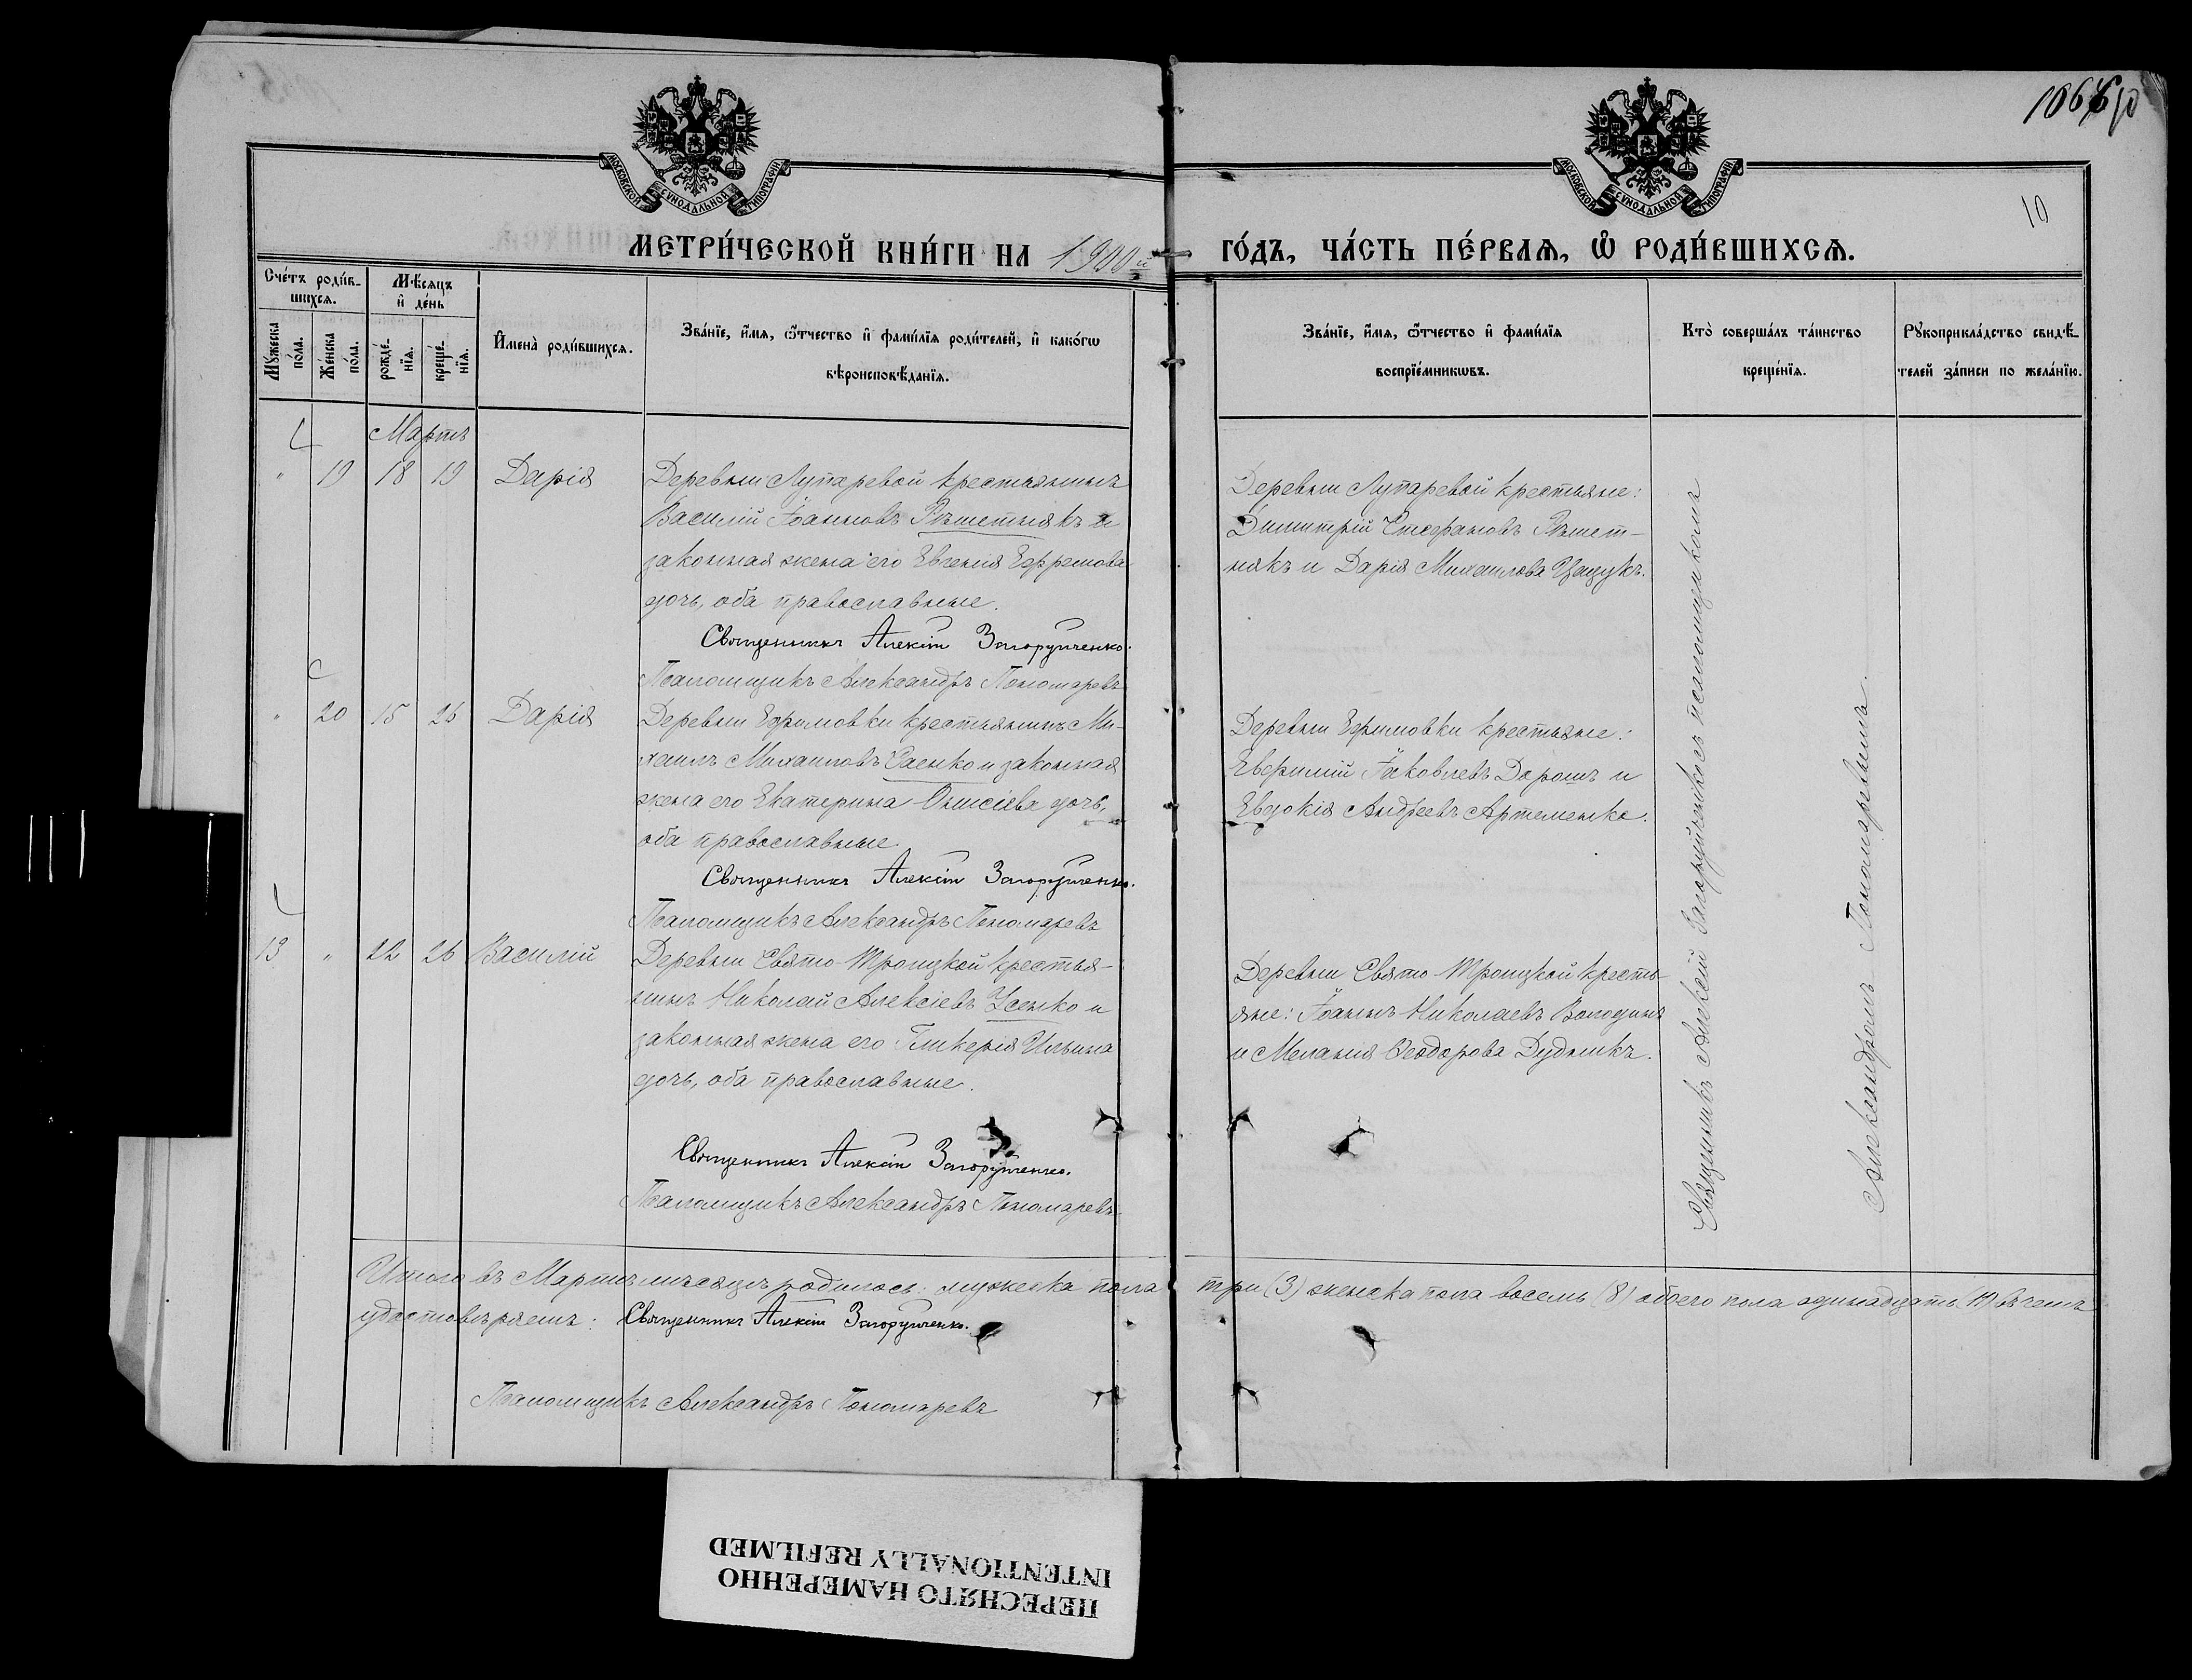 1066 10
10
МОСКОВСКОЙ СѴНОДАЛЬНОЙ ТИПОГРАФІИ
МОСКОВСКОЙ СѴНОДАЛЬНОЙ ТИПОГРАФІИ
МЕТРИ́ЧЕСКОЙ КНИ́ГИ НА 1900й ГО́ДЪ, ЧА́СТЬ ПЕ́РВАѦ, Ѡ҆ РОДИ́ВШИХСѦ.
Сче́тъ роди́в-
шихсѧ.
Мꙋ́жеска
по́ла.
Же́нска
по́ла.
Мѣ́сяцъ
и҆ де́нь
рожде́-
нїѧ.
креще́-
нїѧ.
И҆мена̀ роди́вшихсѧ.
Зва́нїе, и҆́мѧ, ѻ҆́тчество и҆ фами́лїѧ роди́телей, и҆ како́гѡ
вѣроисповѣ́данїѧ.
Зва́нїе, и҆́мѧ, ѻ҆́тчество и҆ фами́лїѧ
воспрїе́мникѡвъ.
Кто̀ соверша́лъ та́инство
креще́нїѧ.
Рꙋкоприкла́дство свидѣ́-
телей за́писи по жела́нїю.
Мартъ
" 19 18 19 Дарія
Деревни Лупаревой крестьянинъ
Василій Іоанновъ Рѣшетнякъ и
законная жена его Евгенія Ефремова
дочь, оба православные.
Священникъ Алексій Загоруйченко.
Псаломщикъ Александръ Пономаревъ
Деревни Лупаревой крестьяне:
Димитрій Стефановъ Рѣшет-
някъ и Дарія Михаилова Цацукъ.
" 20 15 26 Дарія
Деревни Ефимовки крестьянинъ Ми-
хаилъ Михаиловъ Саенко и законная
жена его Екатерина Онисіева дочь,
оба православные.
Священникъ Алексій Загоруйченко.
Псаломщикъ Александръ Пономаревъ
Деревни Ефимовки крестьяне:
Евфимій Іаковлевъ Дорошъ и
Евдокія Андреевъ Артеменко.
13 " 22 26 Василій
Деревни Свято-Троицкой крестья-
нинъ Николай Алексіевъ Усенко и
законная жена его Гликерія Ильина
дочь, оба православные.
Священникъ Алексій Загоруйченко.
Псаломщикъ Александръ Пономаревъ
Деревни Свято-Троицкой кресть-
яне: Іоаннъ Николаевъ Володинъ
и Меланія Ѳеодорова Дудникъ.
Священникъ Алексій Загоруйченко съ псаломщикомъ
Александромъ Пономаревымъ.
Итого въ Мартѣ мѣсяцѣ родилось: мужеска пола три (3) женска пола восемь (8) обоего пола одинадцать (11) въ чемъ
удостовѣряемъ: Священникъ Алексій Загоруйченко.
Псаломщикъ Александръ Пономаревъ
ПЕРЕСНЯТО НАМЕРЕННО
INTENTIONALLY REFILMED